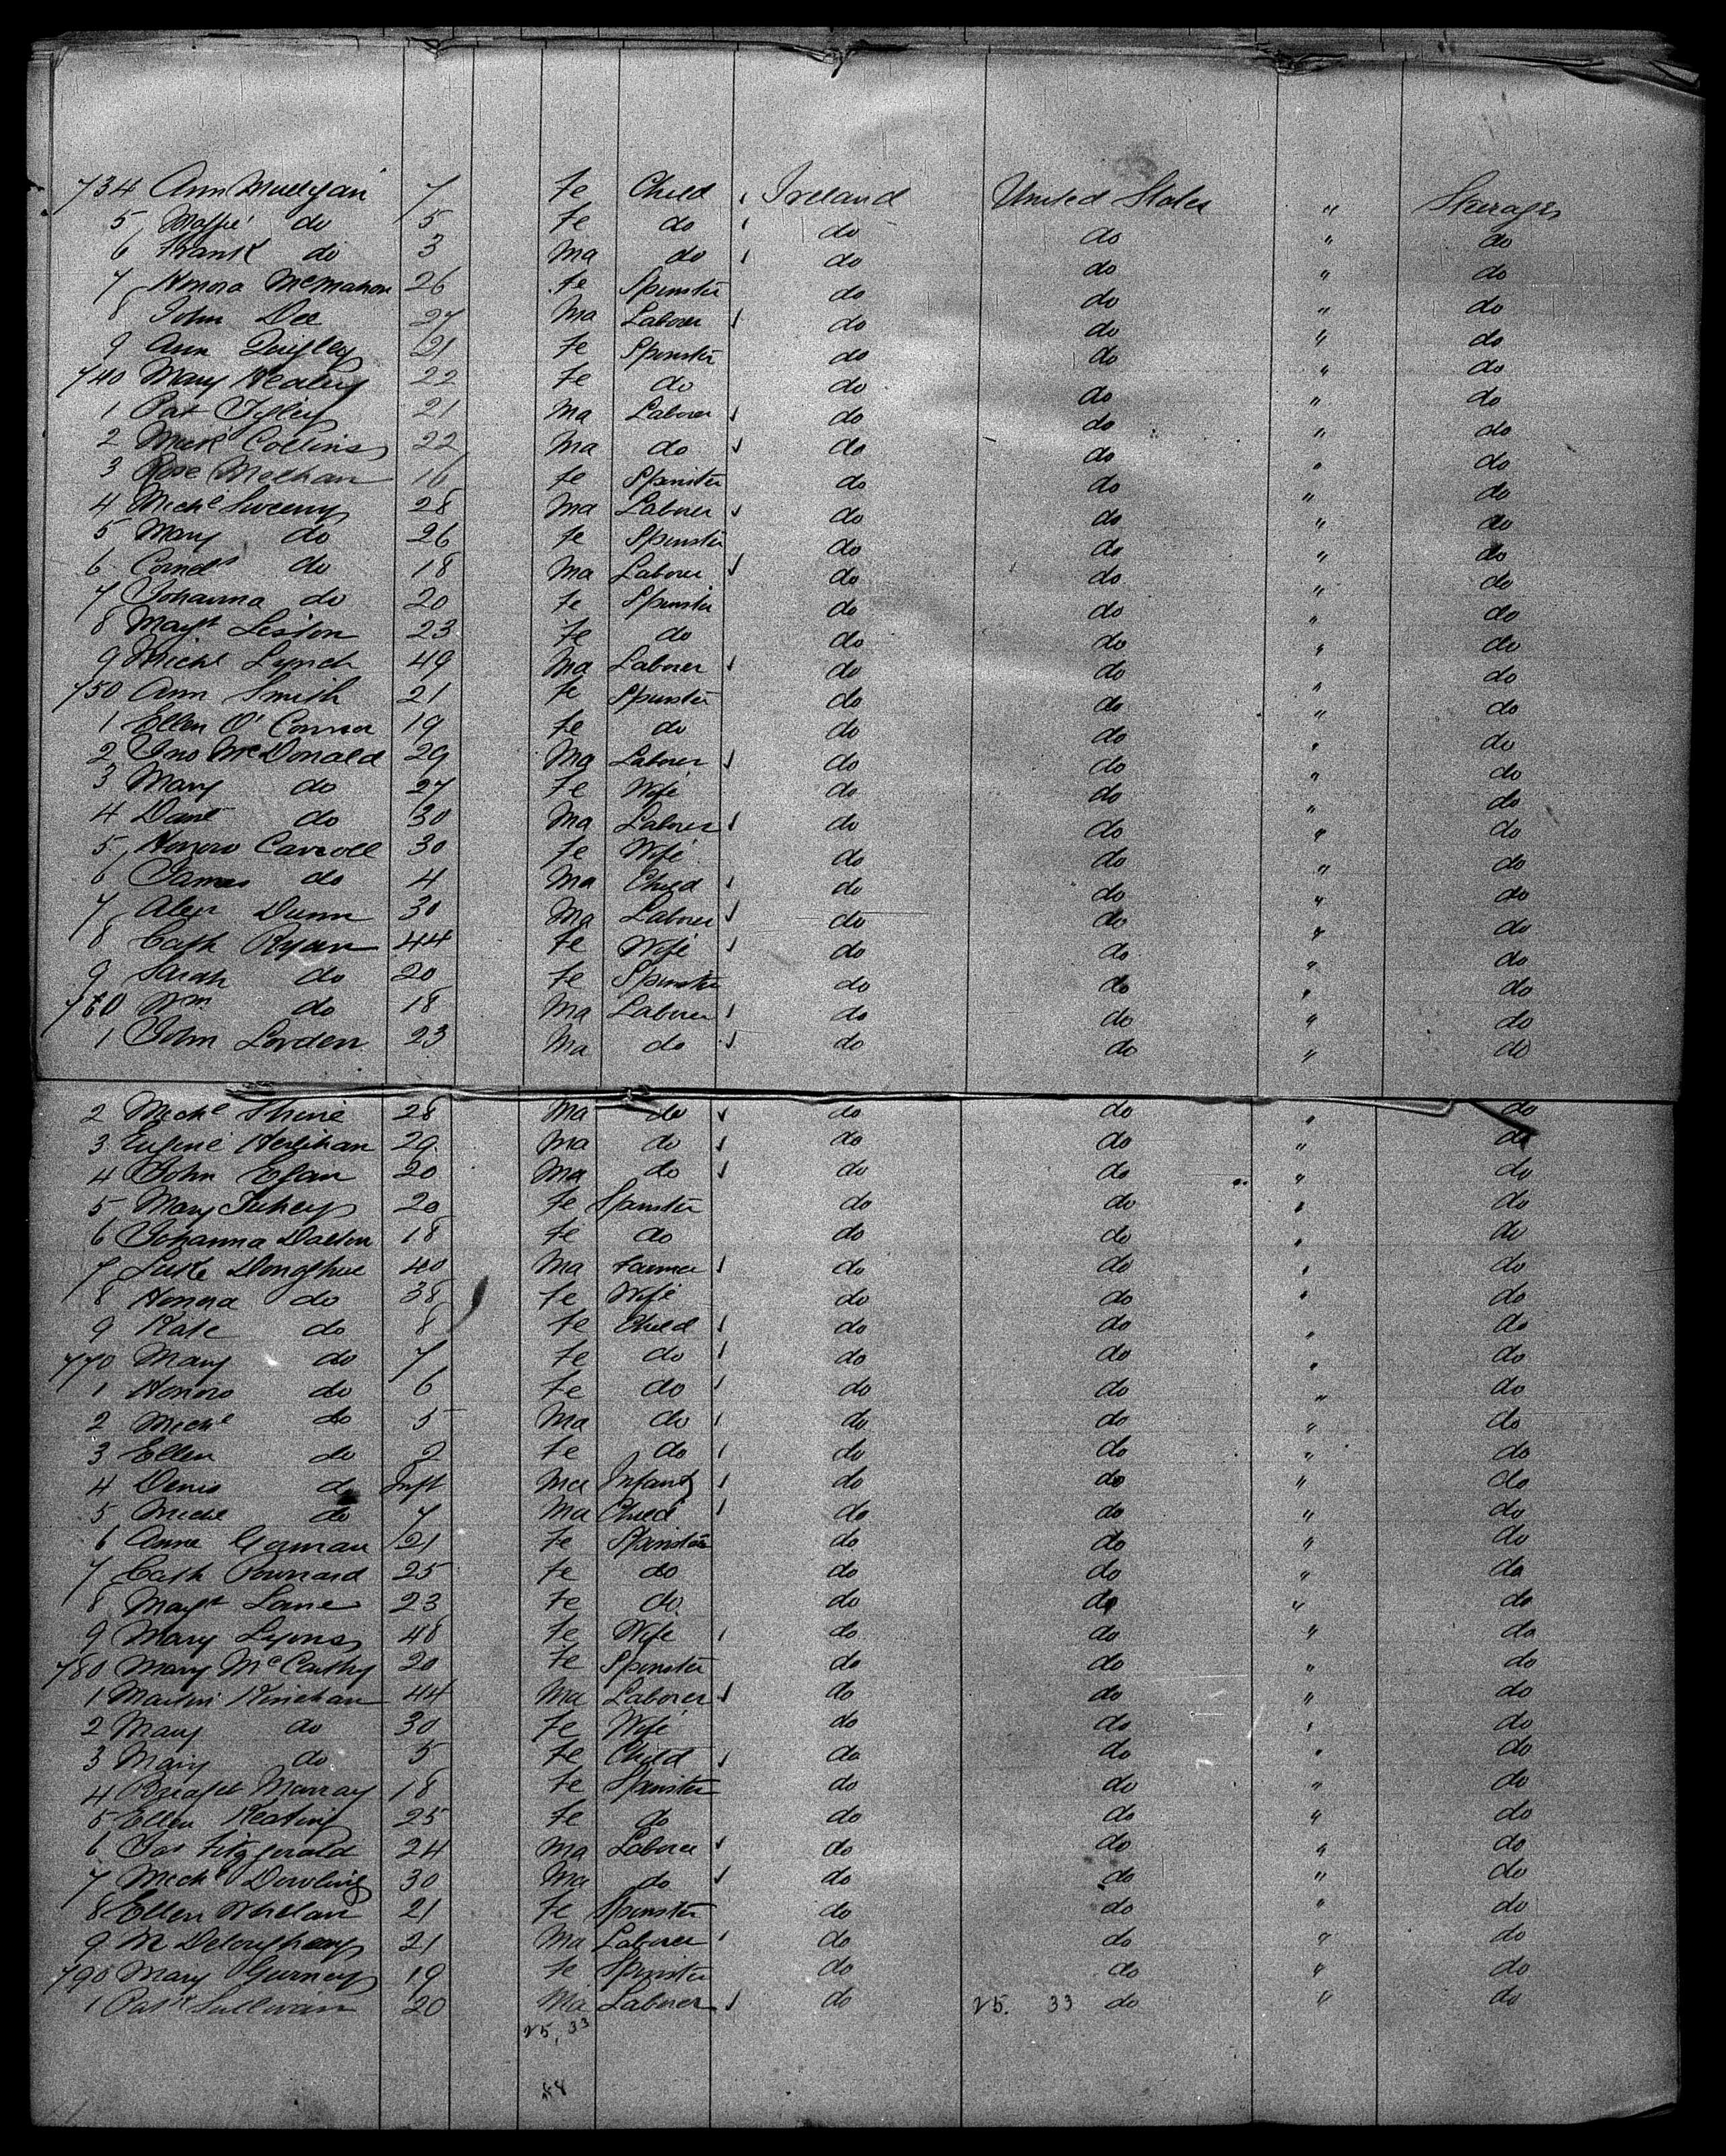 734 Ann Mulligan 7 Fe Child Ireland United States " Steerage
5 do 5 Fe do do do " do
6 Frank do 3 Ma do do do " do
7 Honora McMahon 26 Fe Spinster do do " do
8 John Dee 27 Ma Laborer do do " do
9 Ann Quigley 21 Fe Spinster do do " do
740 Mary Healey 22 Fe do do do " do
1 Pat 21 Ma Laborer do do " do
2 Mick Collins 22 Ma do do do " do
3 Rose Meehan 16 Fe Spinster do do " do
4 Michl Sweeny 28 Ma Laborer do do " do
5 Mary do 26 Fe Spinster do do " do
6 Cornels do 18 Ma Laborer do do " do
7 Johanna do 20 Fe Spinster do do " do
8 Magt Liston 23 Fe do do do " do
9 Michl Lynch 49 Ma Laborer do do " do
750 Ann Smith 21 Fe Spinster do do " do
1 Ellen O'Connor 19 Fe do do do " do
2 Jno McDonald 29 Ma Laborer do do " do
3 Mary do 27 Fe Wife do do " do
4 Danl do 30 Ma Laborer do do " do
5 Honora Carroll 30 Fe Wife do do " do
6 James do 4 Ma Child do do " do
7 Alex Dunn 30 Ma Laborer do do " do
8 Cath Ryan 44 Fe Wife do do " do
9 Sarah do 20 Fe Spinster do do " do
760 Wm do 18 Ma Laborer do do " do
1 John Lorden 23 Ma do do do " do
2 Michl Shine 28 Ma do do do " do
3 Eugene Herlihan 29 Ma do do do " do
4 John Egan 20 Ma do do do " do
5 Mary 20 Fe Spinster do do " do
6 Johanna Dalton 18 Fe do do do " do
7 Luke Donoghue 40 Ma Farmer do do " do
8 Honora do 38 Fe Wife do do " do
9 Kate do 8 Fe Child do do " do
770 Mary do 7 Fe do do do " do
1 Honora do 6 Fe do do do " do
2 Michl do 5 Ma do do do " do
3 Ellen do 2 Fe do do do " do
4 Denis do Inft Ma Infant do do " do
5 Michl do 7 Ma Child do do " do
6 Anne Gorman 21 Fe Spinster do do " do
7 Cath 25 Fe do do do " do
8 Magt Lane 23 Fe do do do " do
9 Mary Lyons 48 Fe Wife do do " do
780 Mary McCarthy 20 Fe Spinster do do " do
1 Martin Kinehan 44 Ma Laborer do do " do
2 Mary do 30 Fe Wife do do " do
3 Mary do 5 Fe Child do do " do
4 Bridget Murray 18 Fe Spinster do do " do
5 Ellen Keating 25 Fe do do do " do
6 Jas Fitzgerald 24 Ma Laborer do do " do
7 Michl Dowling 30 Ma do do do " do
8 Ellen Whelan 21 Fe Spinster do do " do
9 M Deloughery 21 Ma Laborer do do " do
790 Mary Gurney 19 Fe Spinster do do " do
1 Patk Sullivan 20 Ma Laborer do 25. 33 do " do
25, 33